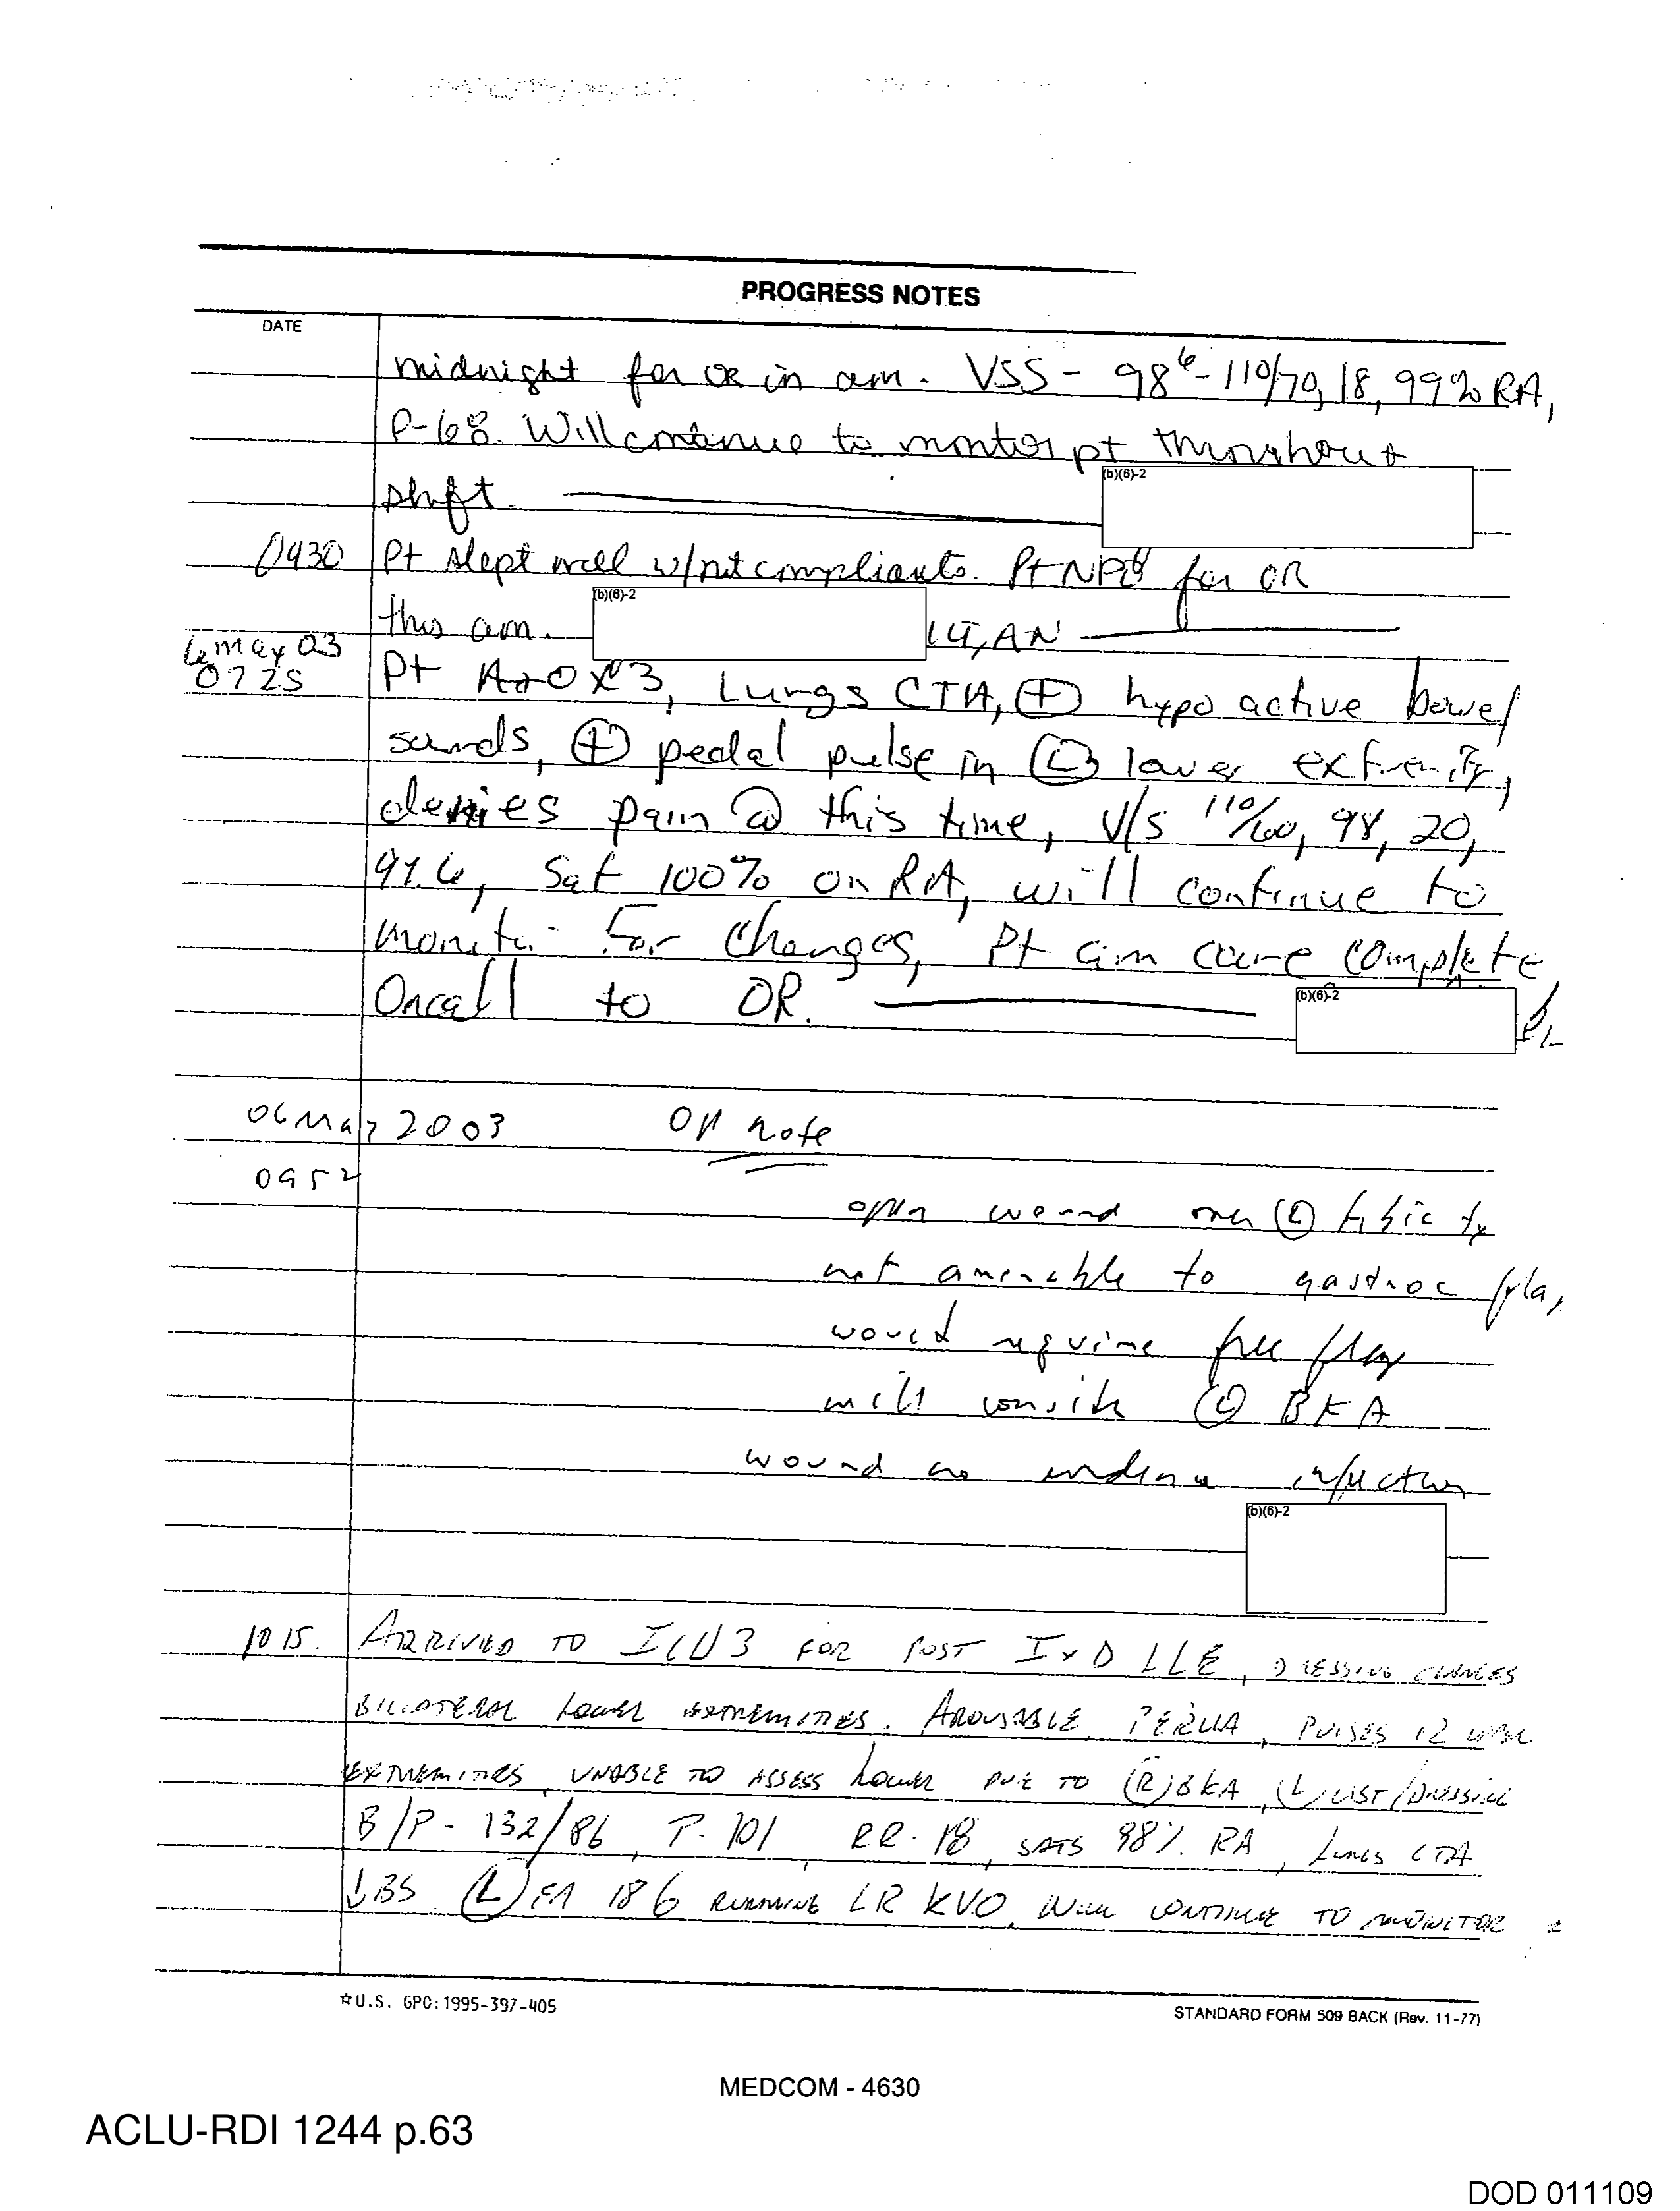 PROGRESS NOTES
DATE
midnight for OR in am. VSS - 98⁶ - 110/70, 18, 99% RA,
P-68. Will continue to monitor pt throughout
shift.
(b)(6)-2
0430 Pt slept well w/out compliants. Pt NPO for OR
this am. (b)(6)-2 1LT, AN
6 May 03
0725
Pt A+O x 3, Lungs CTA, (+) hypo active bowel
sounds, (+) pedal pulse in (L) lower extremity,
denies pain @ this time, V/S 110/60, 98, 20,
97.6, Sat 100% on RA, will continue to
monitor for changes, Pt am care complete
Oncall to OR.
(b)(6)-2
06 May 2003 Op note
0952
open wound over (L) tibia fx
not amenable to gastroc flap,
would require free flap
will consider (L) BKA
wound no evidence infection
(b)(6)-2
1015. ARRIVED TO ICU3 FOR POST I+D LLE, DRESSING CHANGES
BILATERAL LOWER EXTREMITIES. AROUSABLE, PERLA, PULSES
EXTREMITIES, UNABLE TO ASSESS LOWER DUE TO (R) BKA, (L) /DRESSING
B/P - 132/86, P. 101, RR - 18, SATS 98% RA, LUNGS CTA
↓BS (L) FA 18 G RUNNING LR KVO. WILL CONTINUE TO MONITOR
☆U.S. GPO: 1995-397-405
STANDARD FORM 509 BACK (Rev. 11-77)
MEDCOM - 4630
ACLU-RDI 1244 p.63
DOD 011109